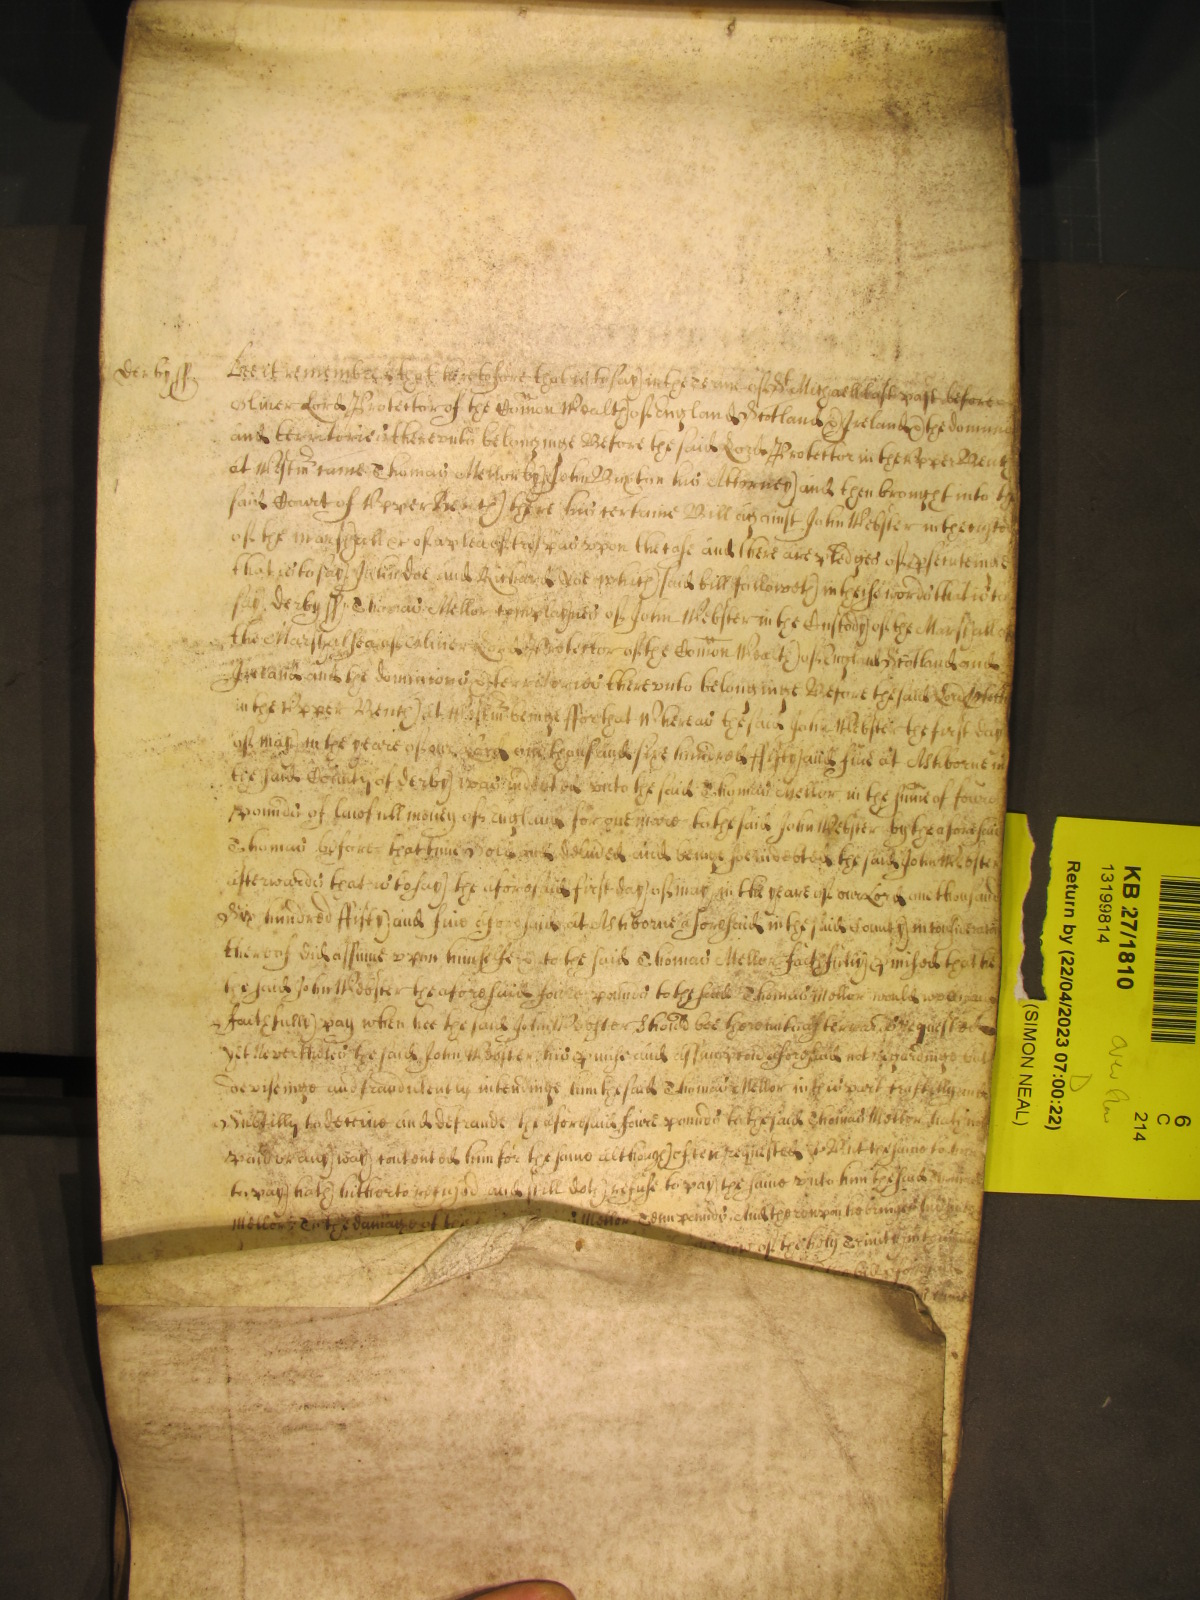 Derby ss
Bee it remembred that heretofore that is to say in the terme of St Michaell last past before
Oliver Lord Protector of the Com̄on Wealth of England Scotland & Ireland & the domin
and territories therevnto belonginge Before the said Lord Protector in the vpper Bench
at Westm̄ came Thomas Mellor by John Buxton his Attorney and then brought into th
said Court of Vpper Bench there his certaine Bill against John Webster in the custod
of the Marshall &c of a plea of trespas vpon the case and there are pledges of psecuteinge
that is to say John doe and Richard Roe which said bill followeth in theise words that is to
say, Derby ss Thomas Mellor complaynes of John Webster in the Custody of the Marshall of
the Marshalsea of Oliver Lord Protector of the Com̄on Wealth of England Scotland and
Ireland and the dominions & territories therevnto belonginge Before the said Lord Protect
in the Vpper Bench at Westm̄ beinge ffor that Whereas the said John Webster the first day
of May in the yeare of our Lord one thousand six hundred ffifty and five at Ashborne in
the said County of derby was indebted vnto the said Thomas Mellor in the sume of fower
pounds of lawfull money of England for one to the said John Webster by the aforesaid
Thomas before that time Sold and delivered and beinge soe indebted the said John Webster
afterwards that is to say the aforesaid first day of may in the yeare of our Lord one thousand
Six hundred ffifty and five aforesaid at Ashborne aforesaid in the said County in consideracon
thereof did assume vpon himselfe & to the said Thomas Mellor faithfully pmised that he
the said John Webster the aforesaid fower pounds to the said Thomas Mellor would well and
faithfully pay when hee the said John Webster Should bee therevnto afterwards requested
yet neverthelesse the said John Webster his pmise and assumpcon aforesaid not regardinge but
deviseinge and fraudulently intendinge him the said Thomas Mellor in this part craftily and
Subtilly to deceive and defraude the aforesaid fowre pounds to the said Thomas Mellor hath not
paid or any way contented him for the same Although often requested But the same to him
to pay hath hitherto refused and still doth refuse to pay the same vnto him the said Thomas
Mellor To the damage of Mellor Tenn pounds And therevpon he bringes
of the holy Trinity
KB 27/1810
13199814
Return by (22/04/2023 07:00:22)
(SIMON NEAL)
6
C
214
D